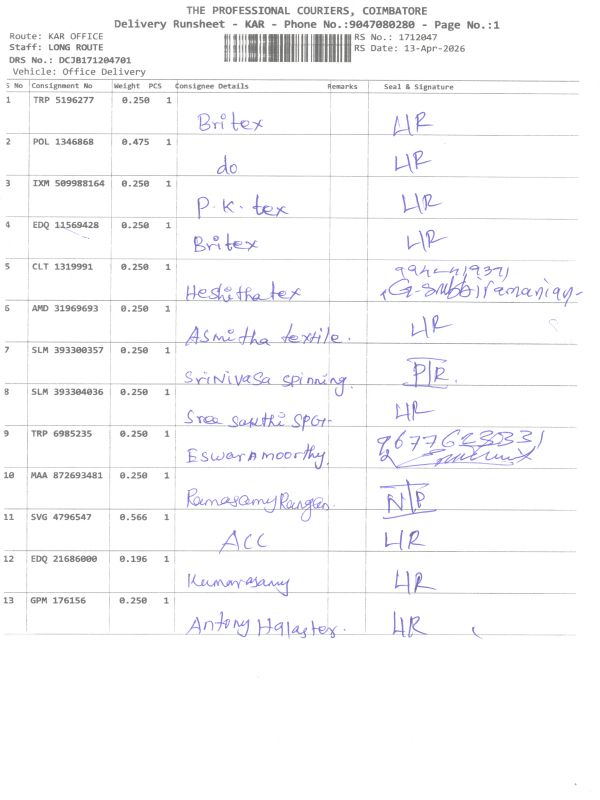 THE PROFESSIONAL COURIERS, COIMBATORE
Delivery Runsheet - KAR - Phone No.:9047080280 - Page No.:1
Route: KAR OFFICE RS No.: 1712047
Staff: LONG ROUTE RS Date: 13-Apr-2026
DRS No.: DCJB171204701
Vehicle: Office Delivery
S No Consignment No Weight PCS Consignee Details Remarks Seal & Signature
1 TRP 5196277 0.250 1
Britex LIR
2 POL 1346868 0.475 1
do LIR
3 IXM 509988164 0.250 1
P.K. tex LIR
4 EDQ 11569428 0.250 1
Britex LIR
5 CLT 1319991 0.250 1
Heshitha tex
6 AMD 31969693 0.250 1
Asmitha textile. LIR
7 SLM 393300357 0.250 1
SriNivasa spinning. P/R.
8 SLM 393304036 0.250 1
Sree Sakthi SPG LIR
9 TRP 6985235 0.250 1
Eswaramoorthy.
10 MAA 872693481 0.250 1
N/P
11 SVG 4796547 0.566 1
ACC LIR
12 EDQ 21686000 0.196 1
Kumarasamy LIR
13 GPM 176156 0.250 1
Antony LIR